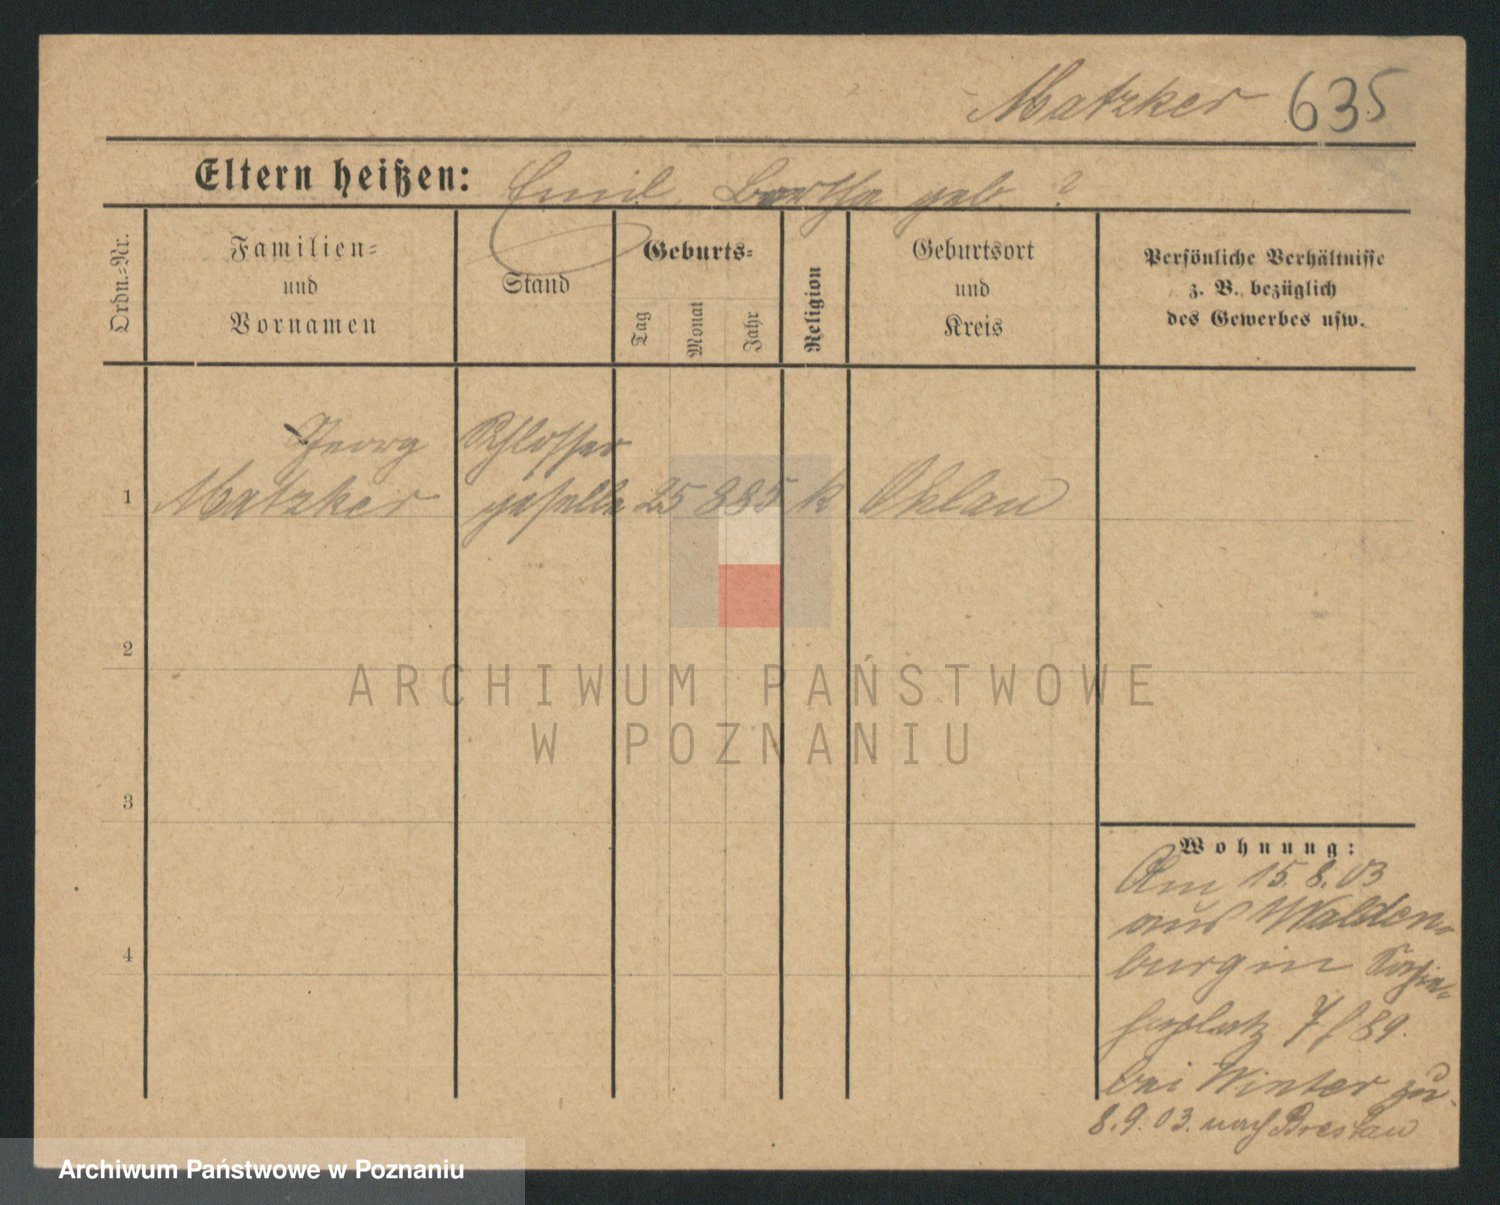 Matzker 635
Eltern heißen: Emil, Bertha geb. ?
Ordn.-Nr.
Familien-
und
Vornamen
Stand
Geburts-
Tag
Monat
Jahr
Religion
Geburtsort
und
Kreis
Persönliche Verhältnisse
z. B. bezüglich
des Gewerbes usw.
Georg Schlosser
1 Matzker geselle 25 8 85 k Ohlau
2
3
4
Wohnung:
Am 15.8.03
aus Walden-
burg in
platz 7 f 89.
bei Winter zu.
8.9.03. nach Breslau
ARCHIWUM PAŃSTWOWE
W POZNANIU
Archiwum Państwowe w Poznaniu